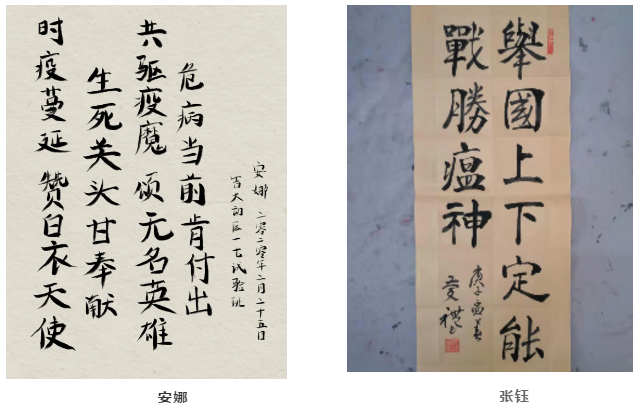 时疫蔓延 赞白衣天使
生死关头甘奉献
共驱疫魔 颂无名英雄
危病当前肯付出
吉大初区一七试验班
安娜 二零二零年二月二十五日
安娜
舉國上下定能
戰勝瘟神
庚子孟春
张钰